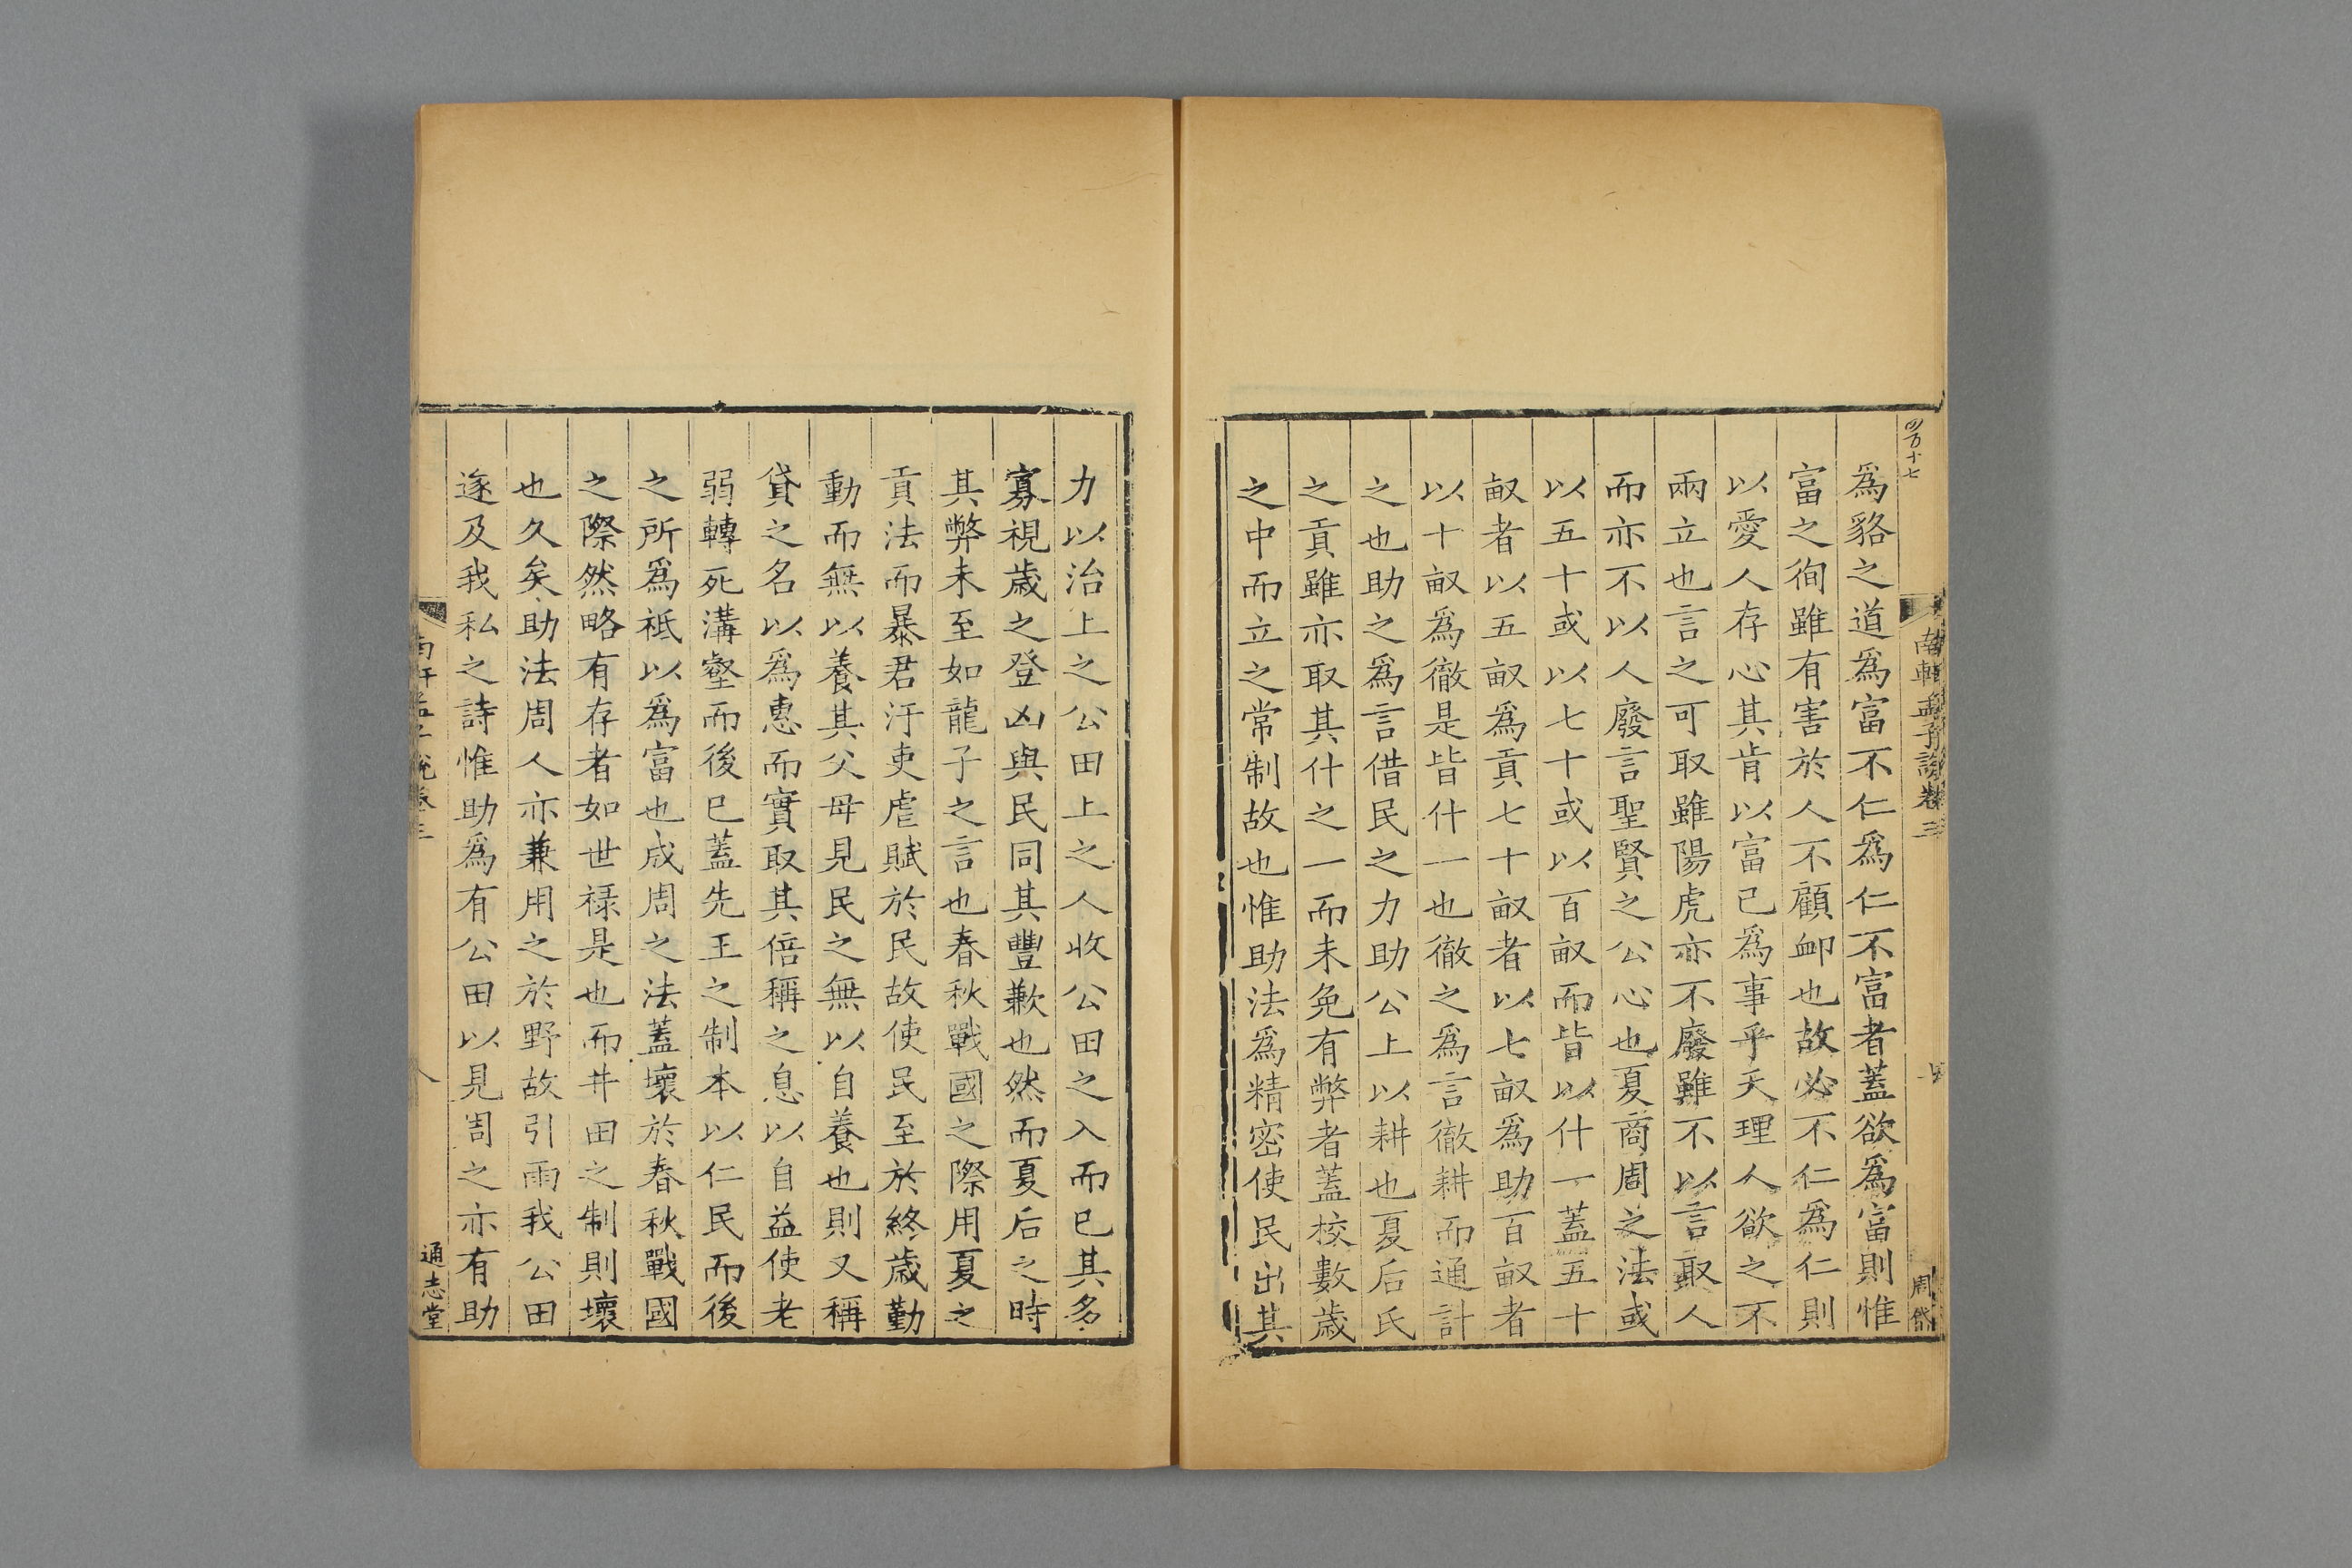 四百十七
南軒孟子說卷三
周
為貉之道為富不仁為仁不富者蓋欲為富則惟
富之徇雖有害於人不顧卹也故必不仁為仁則
以愛人存心其肯以富己為事乎天理人欲之不
兩立也言之可取雖陽虎亦不廢雖不以言取人
而亦不以人廢言聖賢之公心也夏商周之法或
以五十或以七十或以百畝而皆以什一蓋五十
畝者以五畝為貢七十畝者以七畝為助百畝者
以十畝為徹是皆什一也徹之為言徹耕而通計
之也助之為言借民之力助公上以耕也夏后氏
之貢雖亦取其什之一而未免有弊者蓋校數歲
之中而立之常制故也惟助法為精密使民出其
力以治上之公田上之人收公田之入而已其多
寡視歲之登凶與民同其豐歉也然而夏后之時
其弊未至如龍子之言也春秋戰國之際用夏之
貢法而暴君汙吏虐賦於民故使民至於終歲勤
動而無以養其父母見民之無以自養也則又稱
貸之名以為惠而實取其倍稱之息以自益使老
弱轉死溝壑而後已蓋先王之制本以仁民而後
之所為祗以為富也成周之法蓋壞於春秋戰國
之際然略有存者如世祿是也而井田之制則壞
也久矣助法周人亦兼用之於野故引雨我公田
遂及我私之詩惟助為有公田以見周之亦有助
南軒孟子說卷三
八
通志堂